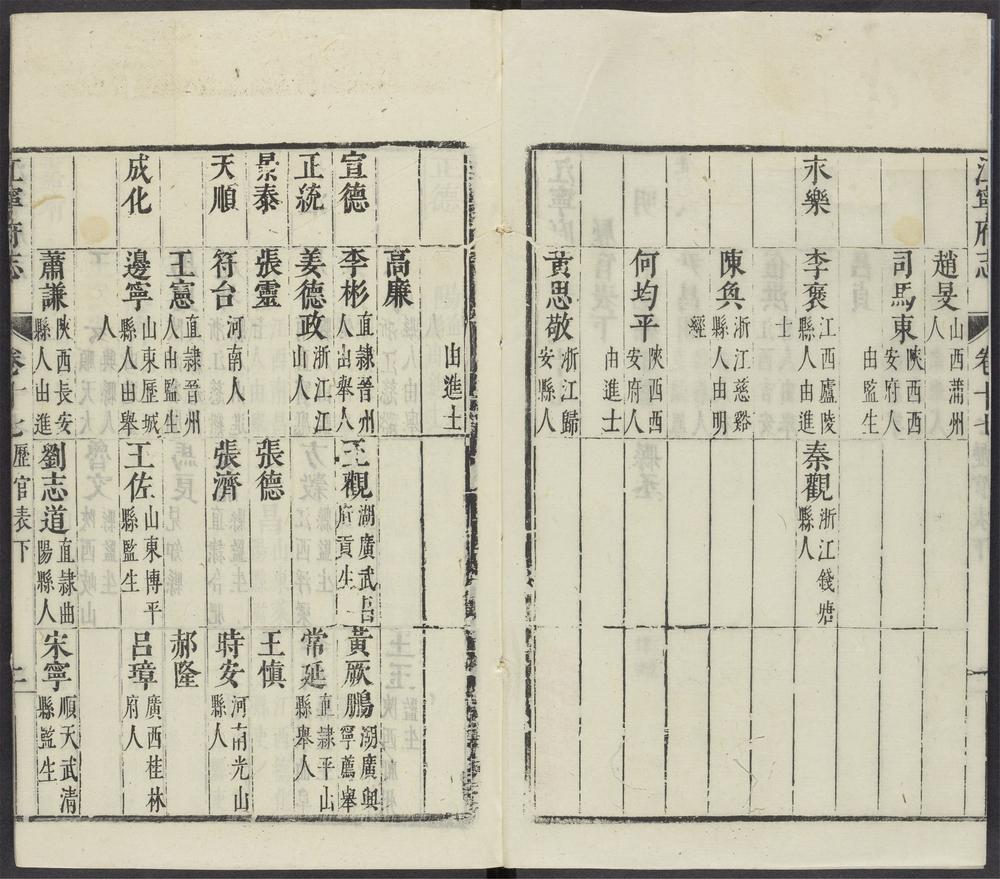 江寧府志
卷十七
趙旻 山西蕭州人
司馬東 陝西西安府人由監生
永樂
李褒 江西廬陵縣人由進士
秦觀 浙江錢塘縣人
陳奐 浙江慈谿縣人由明經
何均平 陝西西安府人由進士
黃思敬 浙江歸安縣人
由進士
高廉
宣德
李彬 直隸晉州人由舉人
王觀 湖廣武昌府貢生
黃厥鵬 湖廣興寧薦舉
正統
姜德政 浙江江山人
常延 直隸平山縣舉人
景泰
張靈
張德
王慎
天順
符台 河南人
張濟
時安 河南光山縣人
王憲 直隸晉州人由監生
郝隆
成化
邊寧 山東歷城縣人由舉人
王佐 山東博平縣監生
呂璋 廣西桂林府人
蕭謙 陝西長安縣人由進
劉志道 直隸曲陽縣人
宋寧 順天武清縣監生
江寧府志
卷十七
歷官表下